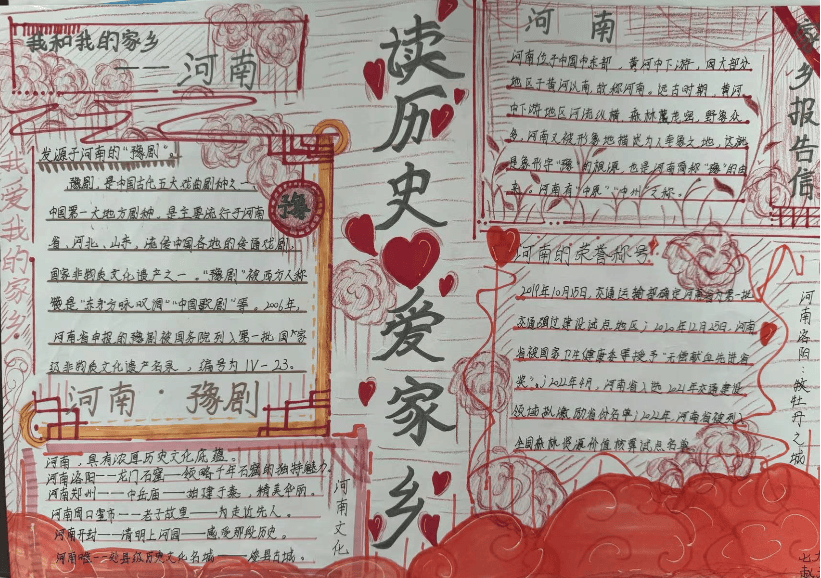 我和我的家乡
——河南
我爱我的家乡
发源于河南的“豫剧”。
豫剧，是中国古代五大戏曲剧种之一、
中国第一大地方剧种。是主要流行于河南
省、河北、山东，流传中国各地的传统戏剧、
国家非物质文化遗产之一。“豫剧”被西方人称
豫是“东方咏叹调”“中国歌剧”等。2006年，
河南省申报的豫剧被国务院列入第一批国家
级非物质文化遗产名录，编号为Ⅳ-23。
豫
河南·豫剧
河南，具有浓厚历史文化底蕴。
河南洛阳——龙门石窟——领略千年石窟的独特魅力。
河南郑州——中岳庙——始建于秦，精美华丽。
河南周口鹿邑——老子故里——为走近先人。
河南开封——清明上河园——感受那段历史。
县级历史文化名城——睢县古城。
河南文化
读历史爱家乡
河南
河南位于中国中东部，黄河中下游，因大部分
地区于黄河以南，故称河南。远古时期，黄河
中下游地区河流纵横，森林茂密，野象众
多，河南又被形象地描述为人牵象之地，这就
是象形字“豫”的根源，也是河南简称“豫”的由
来。河南有“中原”“中州”之称。
家乡报告信
河南的荣誉称号
2019年10月15日，交通运输部确定河南省为第一批
交通强过建设试点地区；2020年12月25日，河南
省被国家卫生健康委等授予“无偿献血先进省
奖”；2022年4月，河南省入选2021年交通建设
领域拟激励省份名单；2022年，河南省被列入
全国森林资源价值核算试点名单
河南洛阳：被牡丹之城